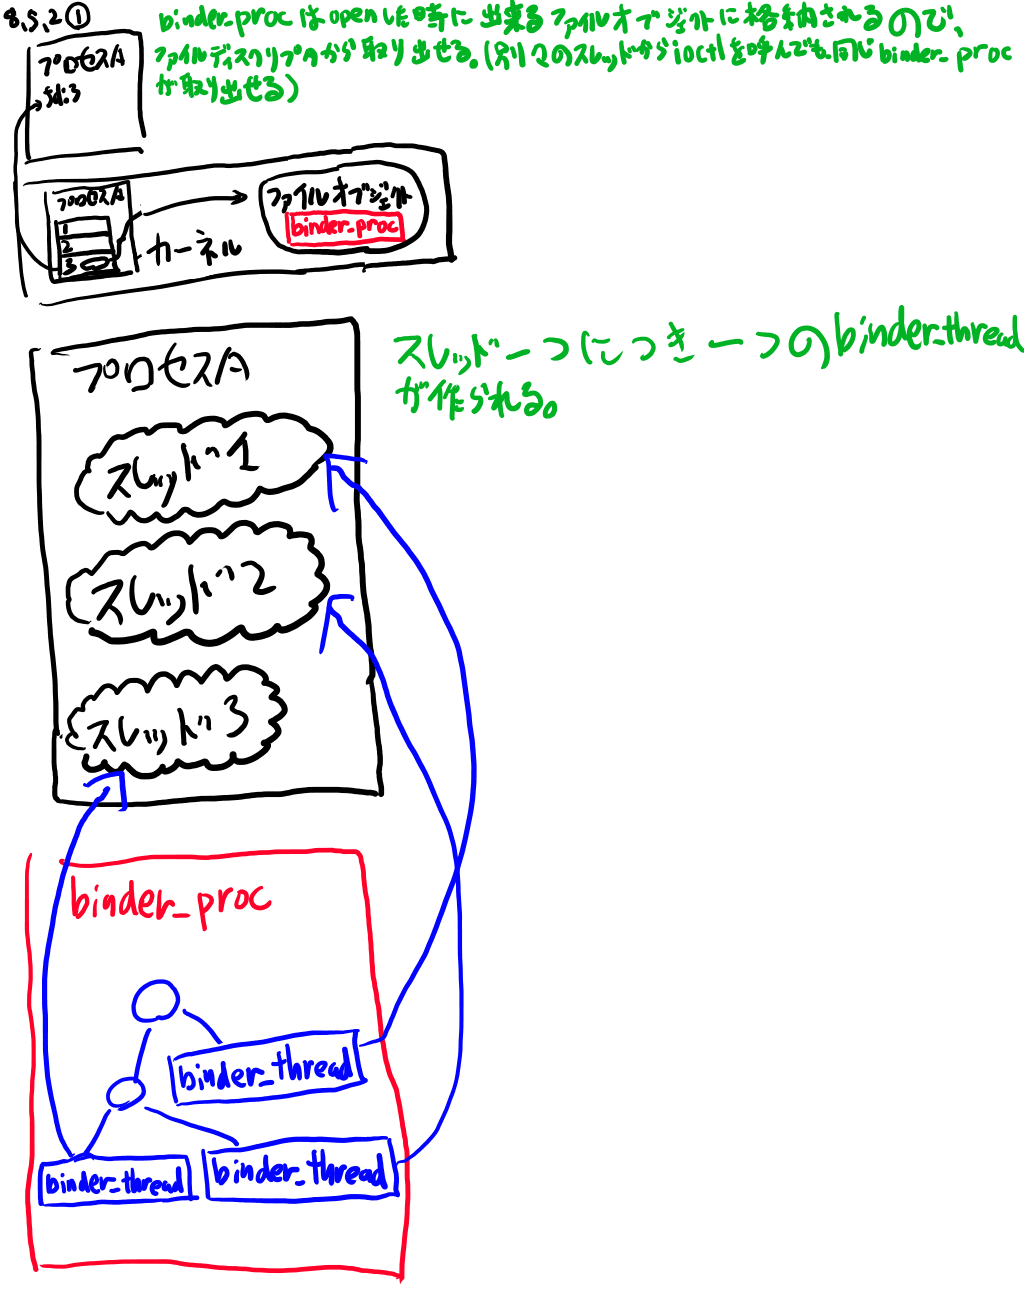 8,5,2 ①
binder_procはopenした時に出来るファイルオブジェクトに格納されるので、
ファイルディスクリプタから取り出せる。(別々のスレッドからioctlを呼んでも同じbinder_proc
が取り出せる)
プロセスA
fd:3
プロセスA
1
2
3
カーネル
ファイルオブジェクト
binder_proc
スレッド一つにつき一つのbinder_thread
が作られる。
プロセスA
スレッド1
スレッド2
スレッド3
binder_proc
binder_thread
binder_thread
binder_thread